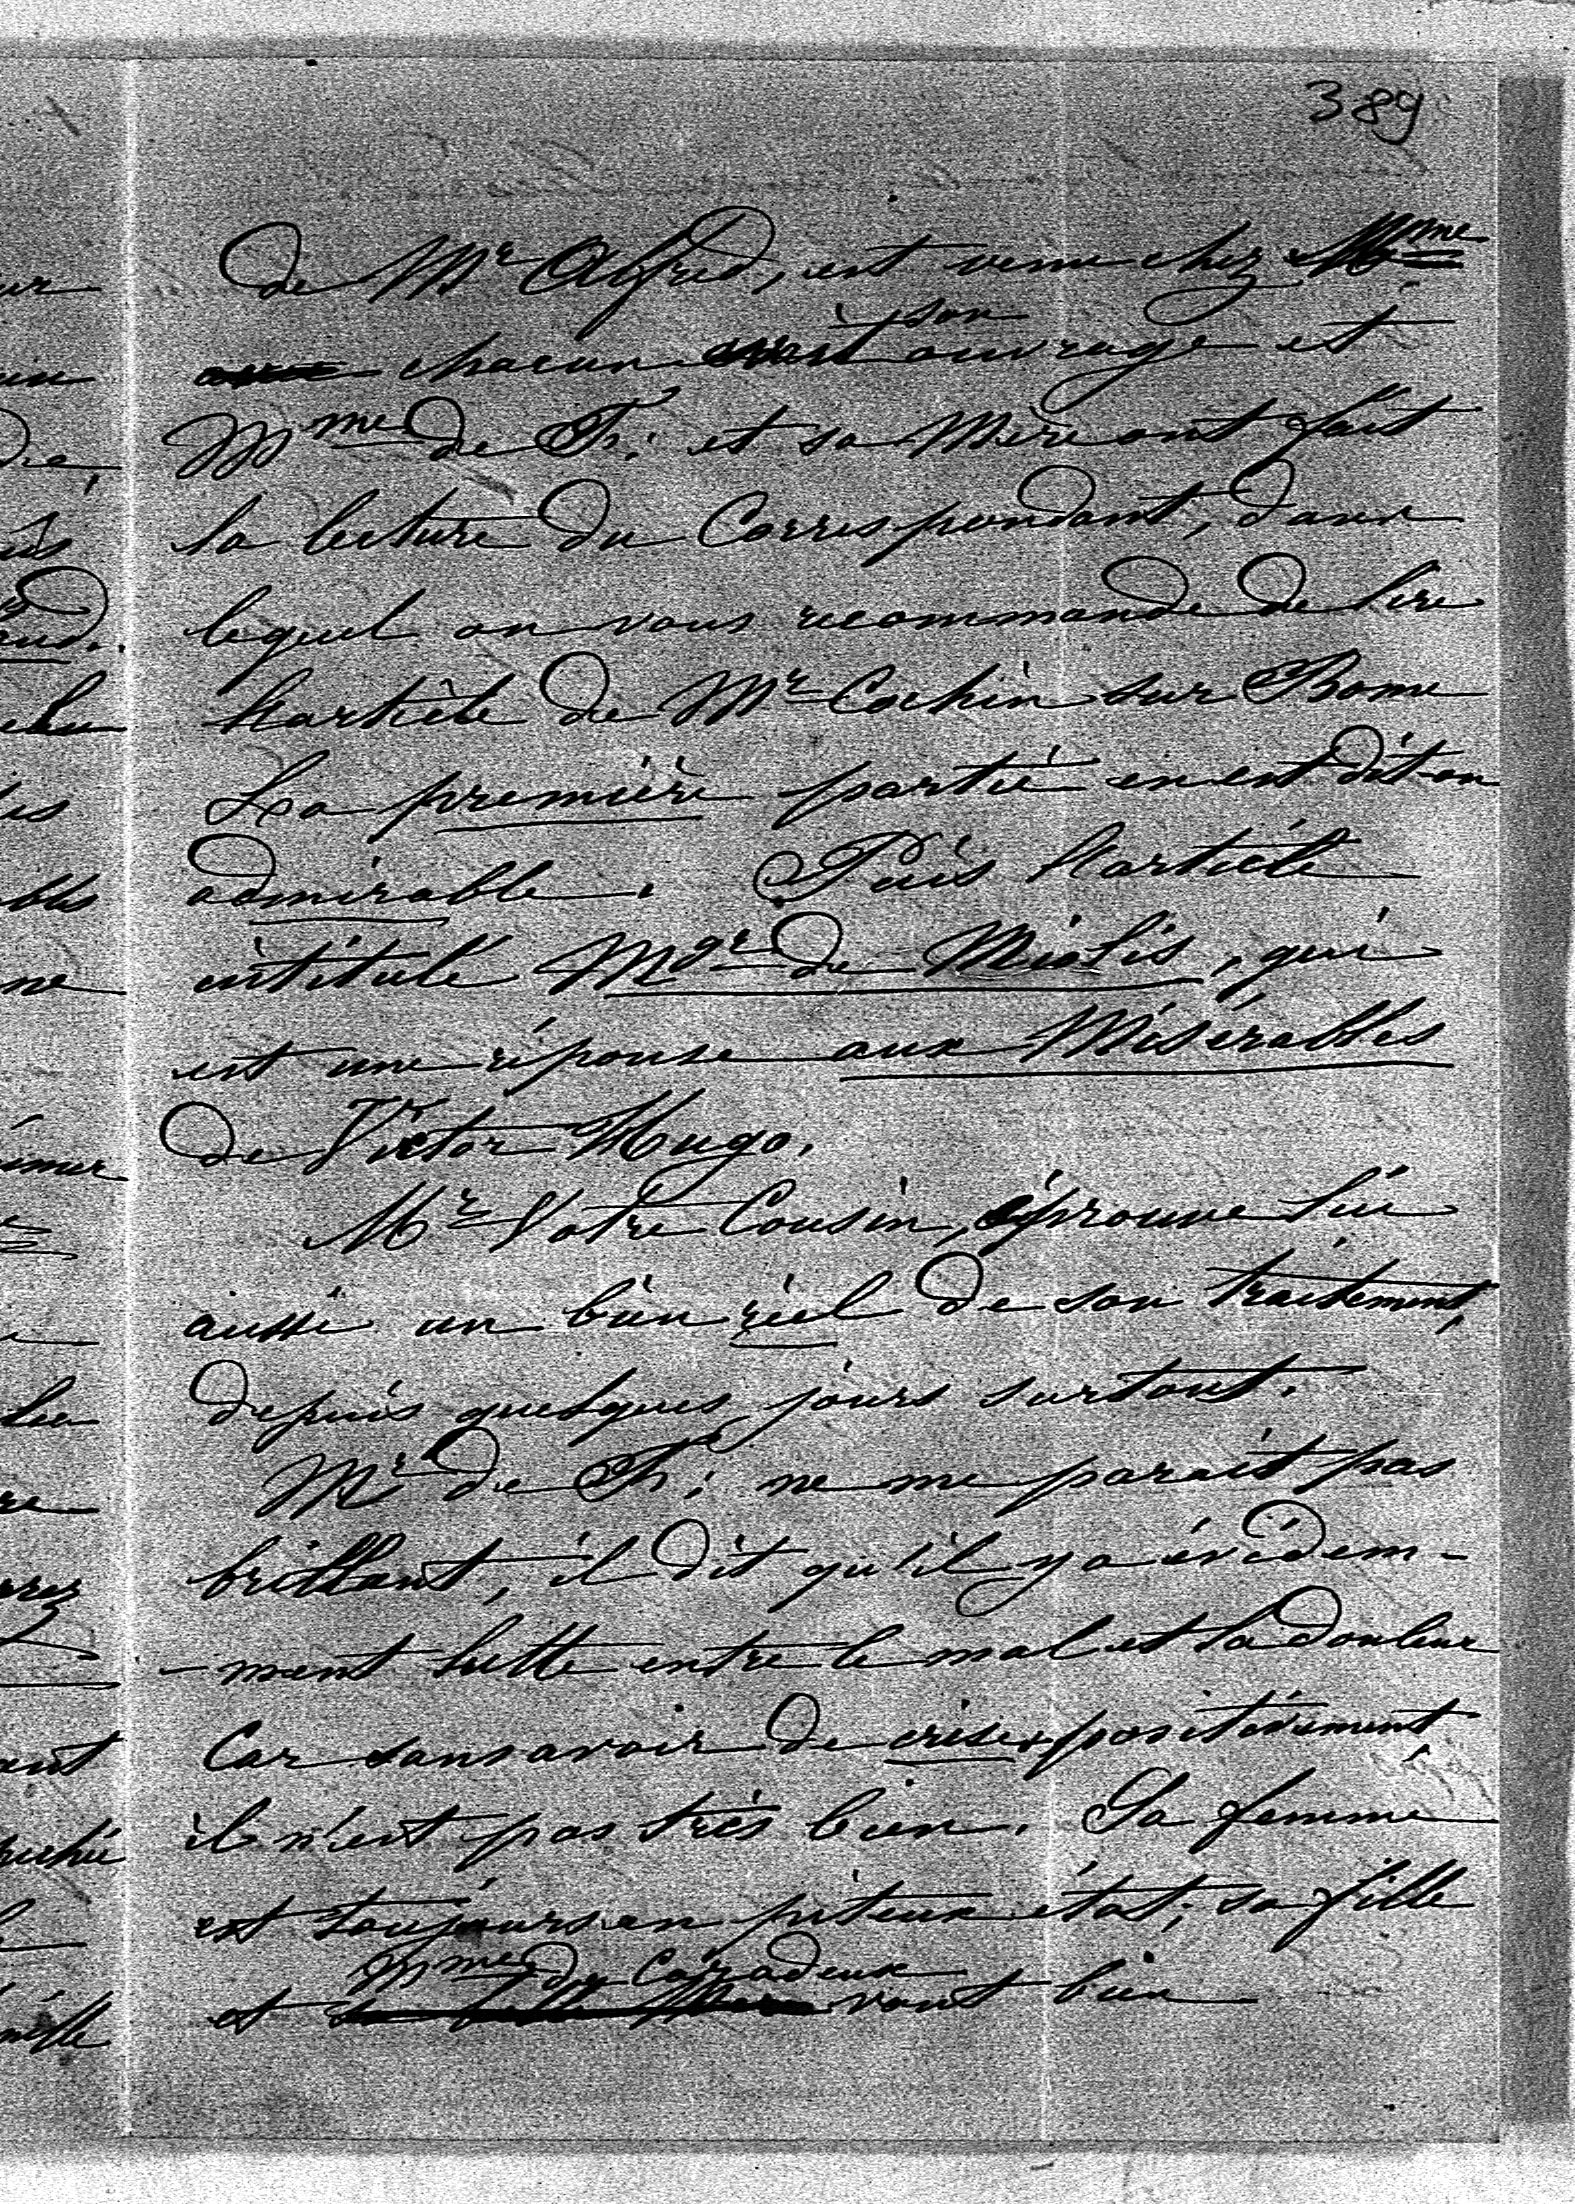 389
de Mr Alfred, est venu chez Mme
chacun son
ouvrage et
Mme de Fr: et sa Mère ont fait
la lecture du Correspondant, dans
lequel on vous recommande de lire
l'article de Mr Cochin sur Rome
La première partie en est dit-on
admirable. Puis l'article
intitulé Mgr de Miolis, qui
est une réponse aux Misérables
de Victor Hugo.
Mr Votre Cousin, éprouve lui
aussi un bien réel de son traitement,
depuis quelques jours surtout.
Mr de Fr: ne me parait pas
brillant, il dit qu'il y a évidem-
-ment lutte entre le mal et la douleur
Car sans avoir de crises positivement
il n'est pas très bien. Sa femme
est toujours en piteux état; sa fille
Mme de
et vont bien